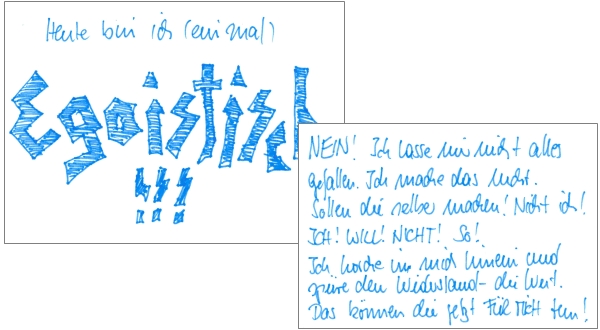 Heute bin ich (einmal)
Egoistisch
!!!
NEIN! Ich lasse mir nicht alles
gefallen. Ich mache das nicht.
Sollen die selber machen! Nicht ich!
ICH! WILL! NICHT! SO!
Ich horche in mich hinein und
spüre den Widerstand - die Wut.
Das können die jetzt FÜR MICH tun!